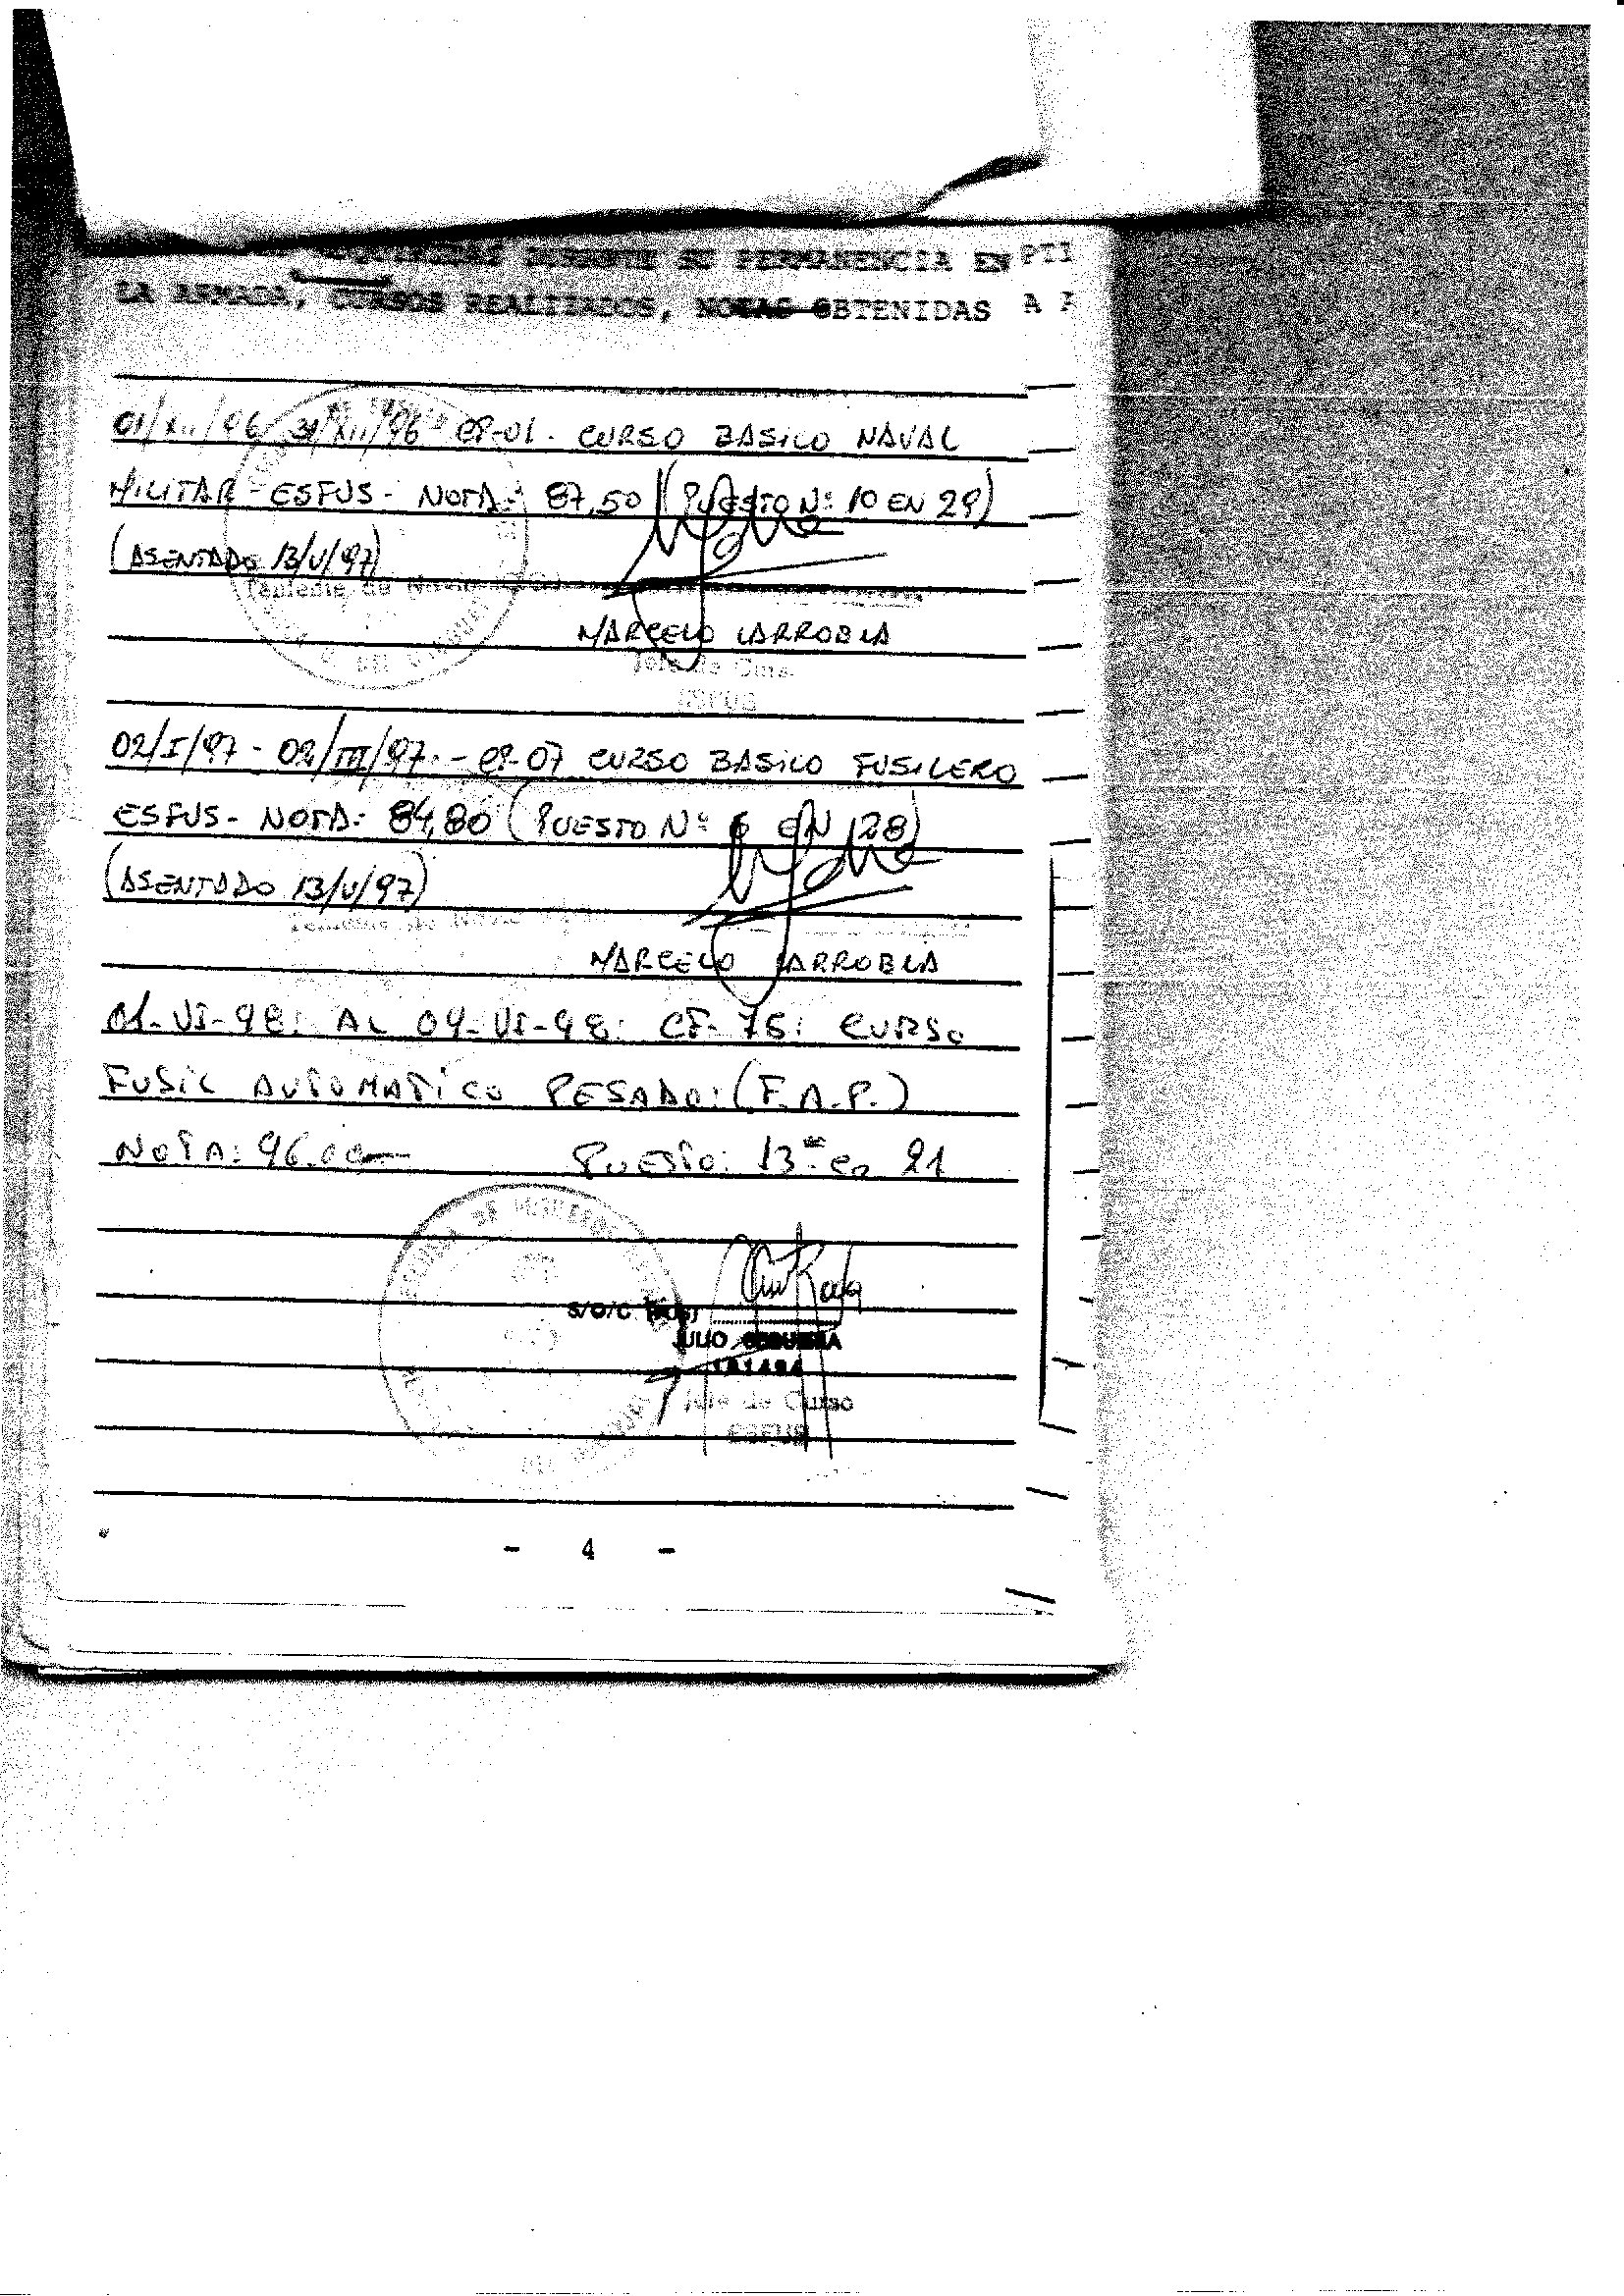 DURANTE SU PERMANENCIA EN PTI
LA ARMADA, CURSOS REALIZADOS, NOTAS OBTENIDAS A
01/XII/96 31/XII/96 CP-01. CURSO BASICO NAVAL
MILITAR - ESFUS - NOTA: 87,50 (PUESTO Nº 10 EN 29)
(ASENTADO 13/V/97)
Teniente de Navio
MARCELO LARROBLA
Jefe de
ESFUS
02/I/97 - 02/III/97. - CP-07 CURSO BASICO FUSILERO
ESFUS - NOTA: 84,80 (PUESTO Nº 6 EN 28)
(ASENTADO 13/V/97)
Teniente de Navio
MARCELO LARROBLA
01-VI-98: AL 04-VI-98: CF-76: CURSO
FUSIL AUTOMATICO PESADO: (F.A.P.)
NOTA: 96.00 PUESTO: 13º en 21
S/O/C (FUS)
JULIO
181494
Jefe de Curso
ESFUS
- 4 -